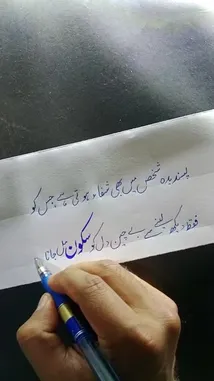 پسندیدہ شخص میں بھی شفاء ہوتی ہے جس کو
فقط دیکھ لینے سے بے چین دل کو سکون مل جاتا